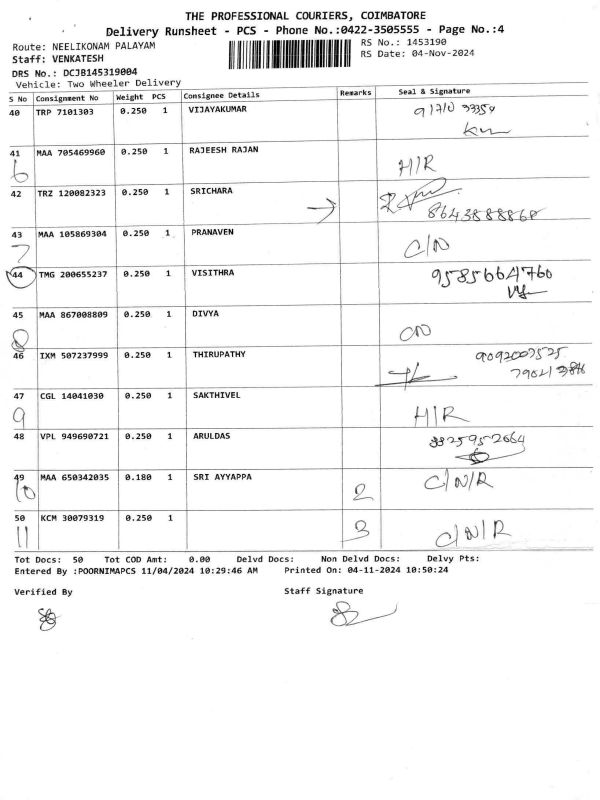 THE PROFESSIONAL COURIERS, COIMBATORE
Delivery Runsheet - PCS - Phone No.:0422-3505555 - Page No.:4
Route: NEELIKONAM PALAYAM
RS No.: 1453190
Staff: VENKATESH
RS Date: 04-Nov-2024
DRS No.: DCJB145319004
Vehicle: Two Wheeler Delivery
S No Consignment No Weight PCS Consignee Details Remarks Seal & Signature
40 TRP 7101303 0.250 1 VIJAYAKUMAR
41 MAA 705469960 0.250 1 RAJEESH RAJAN H/R
6
42 TRZ 120082323 0.250 1 SRICHARA
8643888868
43 MAA 105869304 0.250 1 PRANAVEN C/N
7
44 TMG 200655237 0.250 1 VISITHRA 9585664760
45 MAA 867008809 0.250 1 DIVYA CN
8
46 IXM 507237999 0.250 1 THIRUPATHY 9092007525
47 CGL 14041030 0.250 1 SAKTHIVEL H/R
9
48 VPL 949690721 0.250 1 ARULDAS
49 MAA 650342035 0.180 1 SRI AYYAPPA 2 C/N/R
10
50 KCM 30079319 0.250 1 3 C/N/R
11
Tot Docs: 50 Tot COD Amt: 0.00 Delvd Docs: Non Delvd Docs: Delvy Pts:
Entered By :POORNIMAPCS 11/04/2024 10:29:46 AM Printed On: 04-11-2024 10:50:24
Verified By Staff Signature